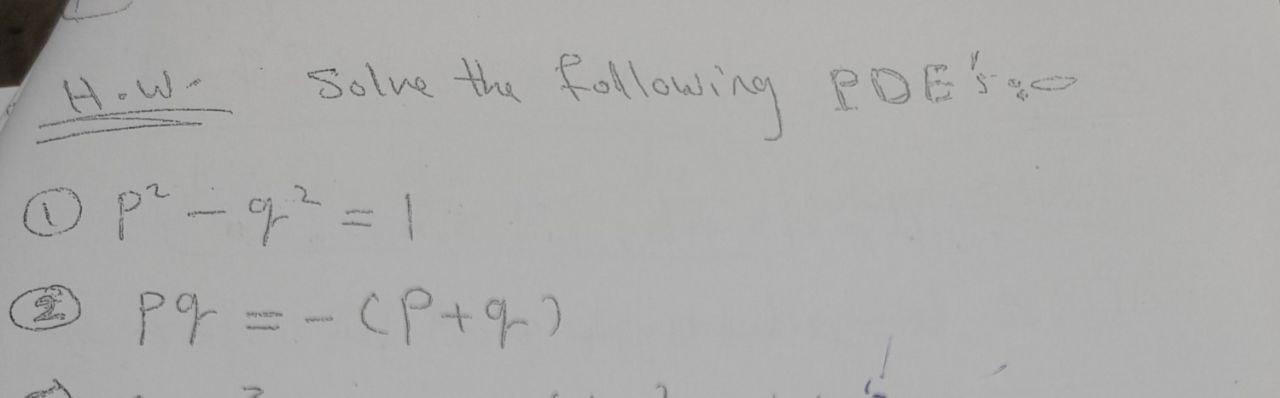 H.W. Solve the following PDE's:-
① p² - q² = 1
② pq = - (p+q)